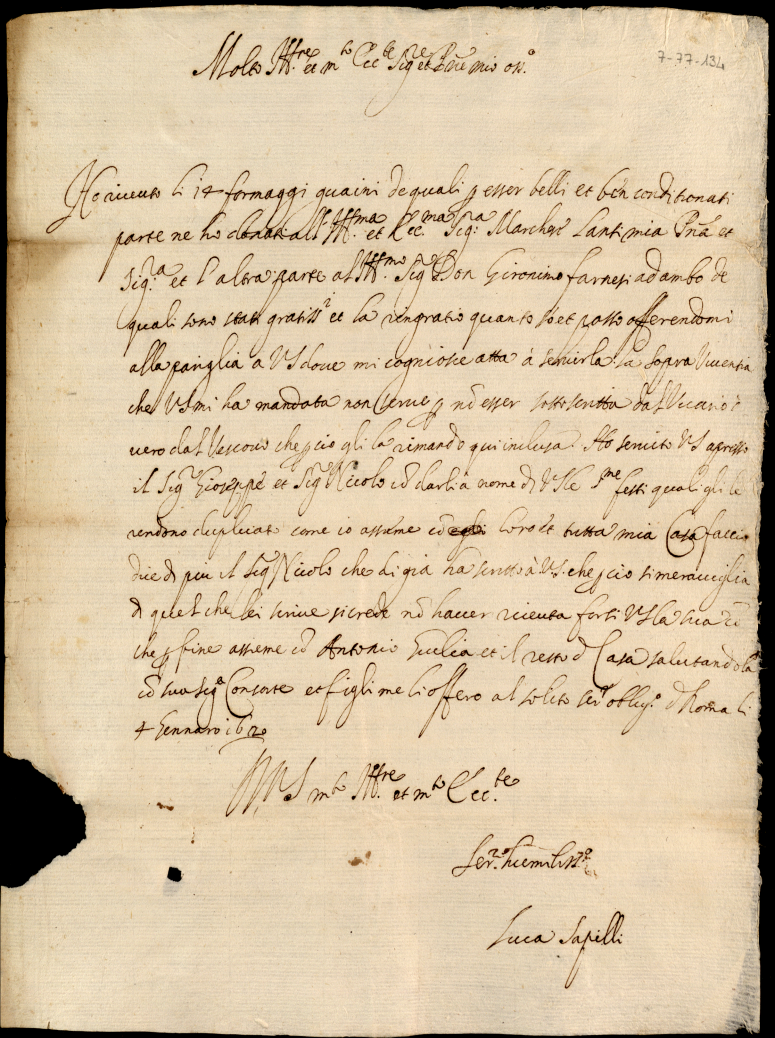 Molto Ill.re et m.to Ecc.te Sig.re et P.rone mio oss.o
7-77-134
Ho riceuuto li 14 formaggi guaini de quali p esser belli et ben conditionati
parte ne ho donati all Ill.ma et Ecc.ma Sig.ra Marchese Lanti mia P.na et
Sig.ra et l'altra parte al Ill.mo Sig.r Don Gironimo farnesi ad ambo de
quali sono stati gratiss.i et la ringratio quanto so et posso offerendomi
alla pariglia a VS doue mi cognosce atta à seruirla. la sopra Viuentia
che VS mi ha mandata non serue p nō esser sotto scritta dal Vicario ò
uero dal Vescouo che p cio gli la rimando qui inclusa. Ho seruito VS apresso
il Sig.r Gioseppe et Sig.r Nicolo cō darli a nome di VS le S.me festi quali gli le
rendono duplicat come io assieme cō loro et tutta mia Casa faccio
dice di piu il Sig.r Nicolo che di gia ha scritto à VS. che p cio si merauiglia
di quel che lei scriue si crede nō hauer riceuta forsi VS la sua cō
che p fine assieme cō Antonio Giulia et il resto di Casa salutandola
cō sua Sig.a Consorte et figli me li offero al solito ser.r oblig.o di Roma li
4 Gennaro 1620
Di VS m.to Ill.re et m.to Ecc.te
Ser.re humiliss.o
Luca Sapelli